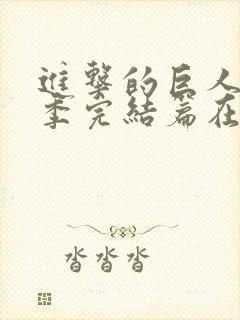 進擊的巨人
季完結篇在
沓沓沓